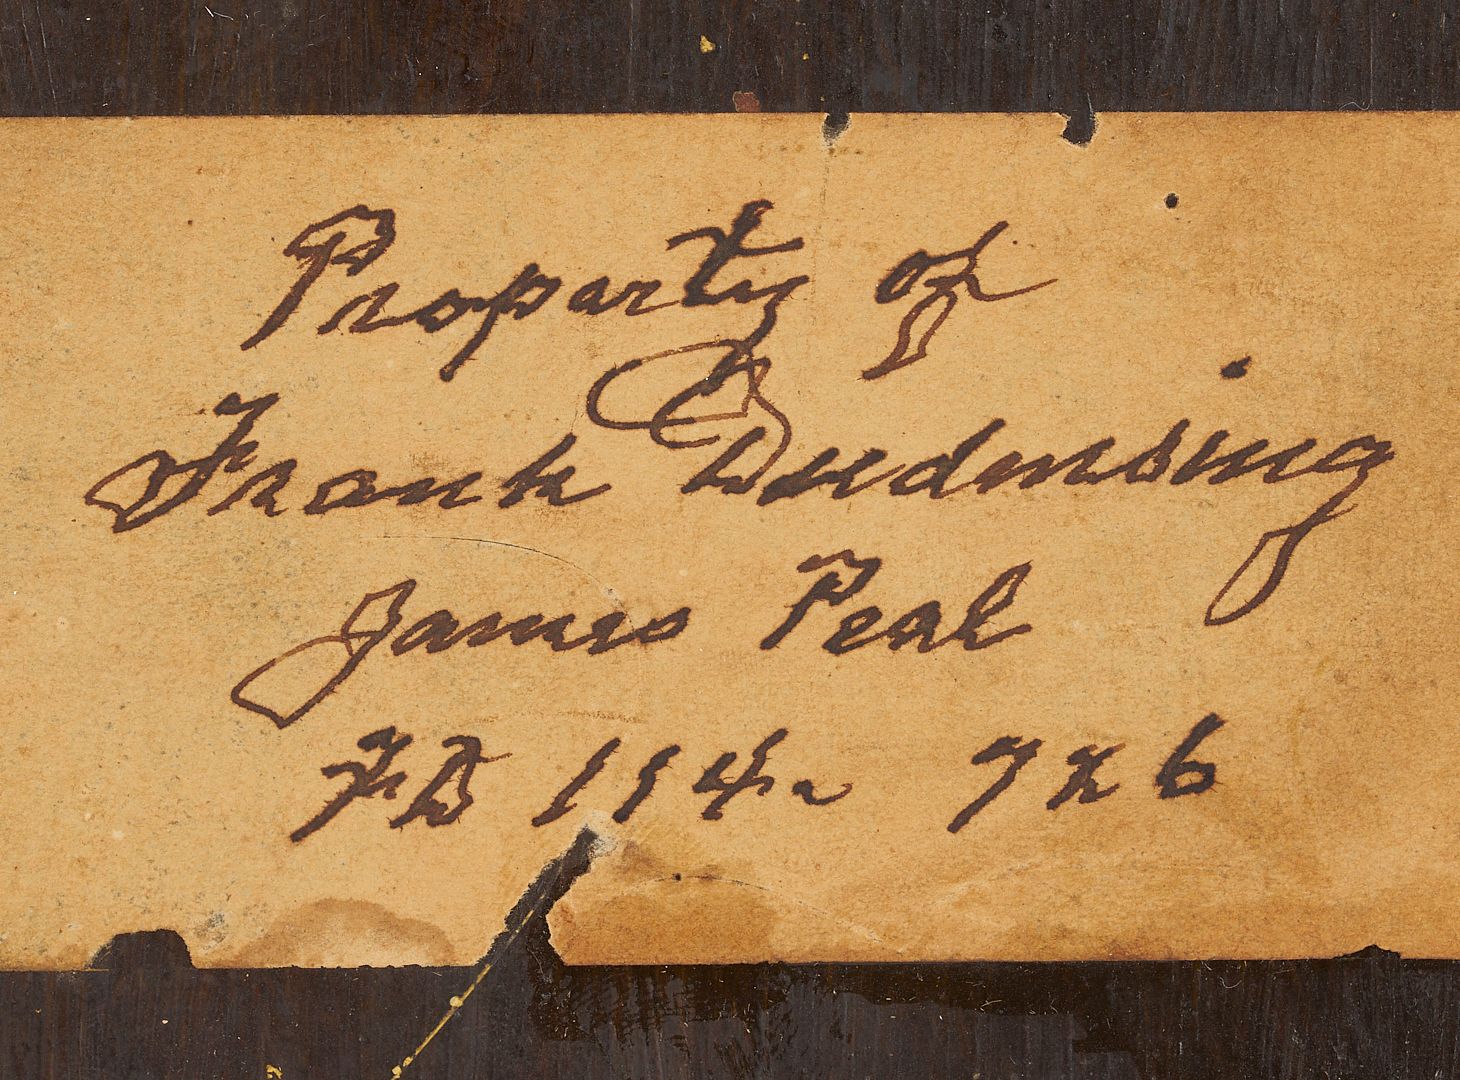 Property of
Frank Dudensing
James Peal
FD 1942 726